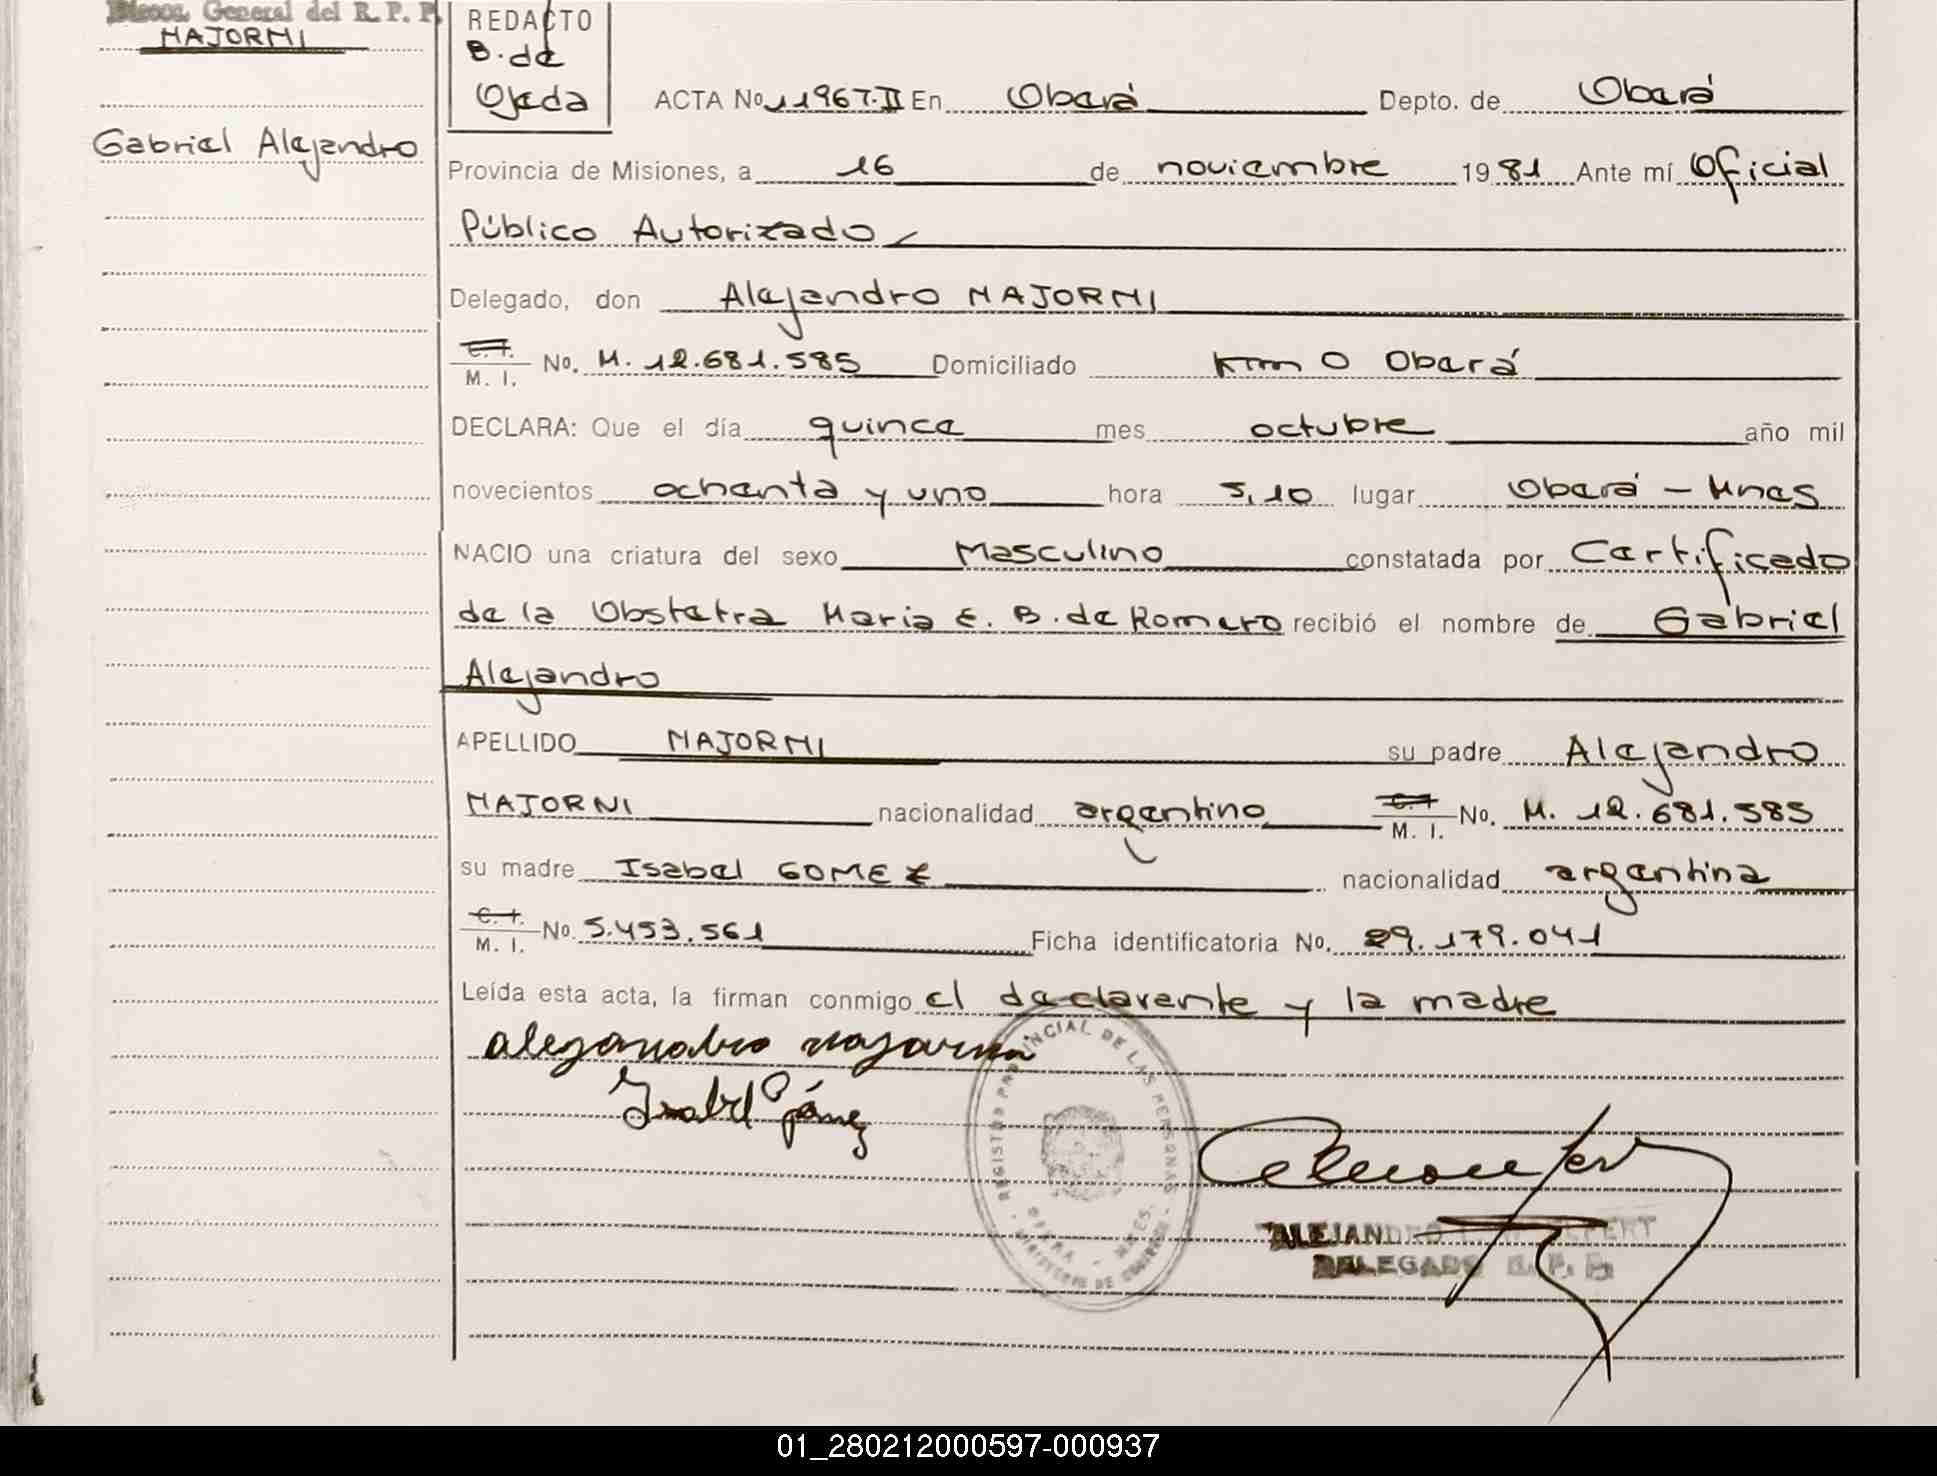 Direcc. General del R. P. P.
NAJORNI
Gabriel Alejandro
REDACTO
B. de
Ojeda
ACTA No 11967.II En Oberá Depto. de Oberá
Provincia de Misiones, a 16 de noviembre 1981 Ante mí Oficial
Público Autorizado
Delegado, don Alejandro NAJORNI
C. I. / M. I. No. M. 12.681.585 Domiciliado Km 0 Oberá
DECLARA: Que el día quince mes octubre año mil
novecientos ochenta y uno hora 5,10 lugar Oberá - Mnes
NACIO una criatura del sexo Masculino constatada por Certificado
de la Obstetra Maria E. B. de Romero recibió el nombre de Gabriel
Alejandro
APELLIDO NAJORNI su padre Alejandro
NAJORNI nacionalidad argentino C. I. / M. I. No. M. 12.681.585
su madre Isabel GOMEZ nacionalidad argentina
C. I. / M. I. No. 5.453.561 Ficha identificatoria No. 29.179.041
Leída esta acta, la firman conmigo el declarante y la madre
alejandro najorni
Isabel Gómez
REGISTRO PROVINCIAL DE LAS PERSONAS
OBERA - MNES.
MINISTERIO DE GOBIERNO
ALEJANDRO
DELEGADO R. P. P.
01_280212000597-000937